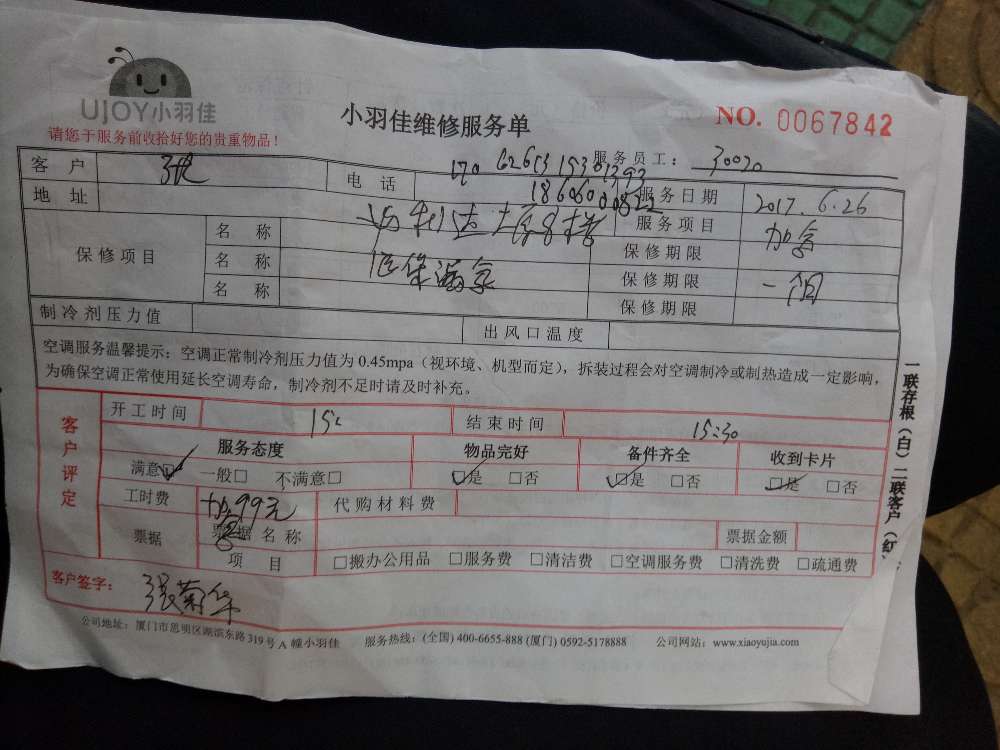 UJOY小羽佳
小羽佳维修服务单
NO. 0067842
请您于服务前收拾好您的贵重物品！
客户 张 电话 服务员工： 30030
地址 服务日期 2017.6.26
保修项目 名称 服务项目 加氟
名称 保修期限
名称 保修期限 一个月
保修期限
制冷剂压力值 出风口温度
空调服务温馨提示：空调正常制冷剂压力值为 0.45mpa（视环境、机型而定），拆装过程会对空调制冷或制热造成一定影响，
为确保空调正常使用延长空调寿命，制冷剂不足时请及时补充。
客户评定
开工时间 结束时间 15:30
服务态度 物品完好 备件齐全 收到卡片
满意☑ 一般□ 不满意□ ☑是 □否 ☑是 □否 ☑是 □否
工时费 99元 代购材料费
票据 票据名称 票据金额
项目 □搬办公用品 □服务费 □清洁费 □空调服务费 □清洗费 □疏通费
客户签字： 张菊华
公司地址：厦门市思明区湖滨东路 319 号 A 幢小羽佳 服务热线：(全国) 400-6655-888 (厦门) 0592-5178888 公司网站：www.xiaoyujia.com
一联存根（白）二联客户（红）